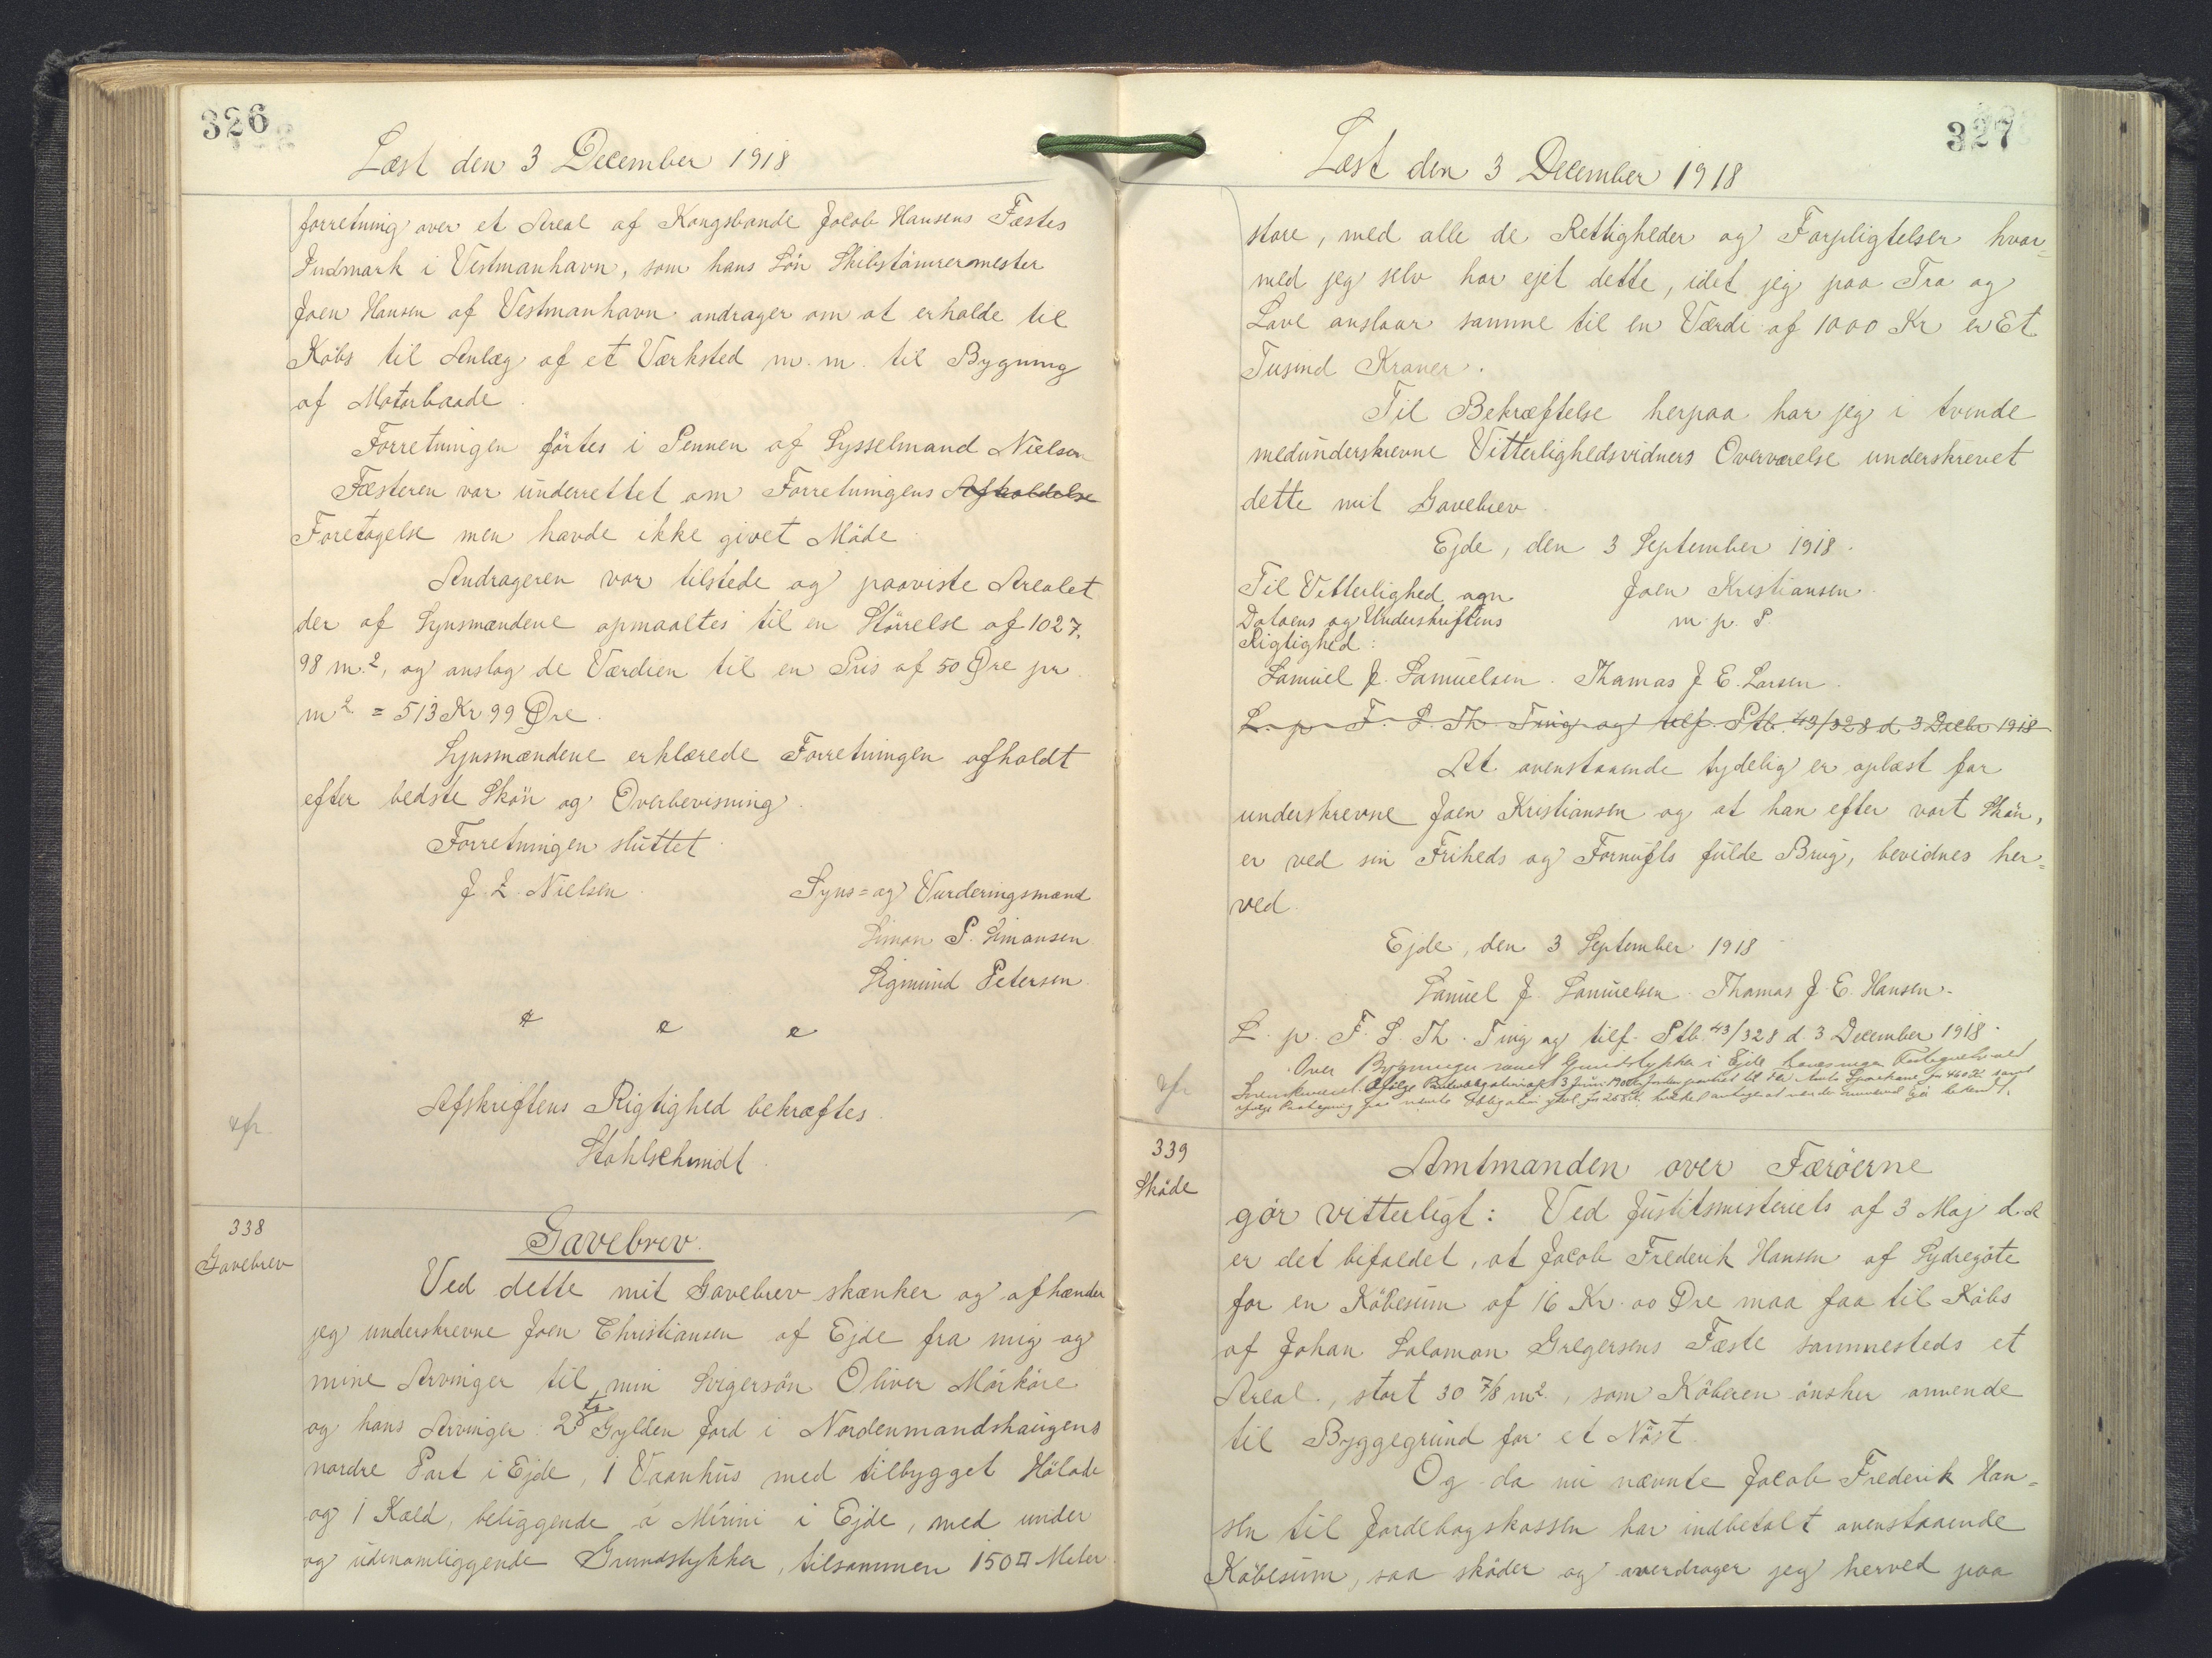 326
Læst den 3 December 1918
forretning over et Areal af Kongsbonde Jacob Hansens Fæstes
Indmark i Vestmanhavn, som hans Sön Skibstömrermester
Joen Hansen af Vestmanhavn andrager om at erholde til
Köbs til Anlæg af et Værksted m.m. til Bygning
af Motorbaade.
Forretningen förtes i Pennen af Sysselmand Nielsen
Fæsteren var underrettet om Forretningens Afholdelse
Foretagelse men havde ikke givet Möde
Andrageren var tilstede og paaviste Arealet
der af Synsmændene opmaaltes til en Störrelse af 1027,
98 m², og anslog de Værdien til en Pris af 50 Øre pr
m² = 513 Kr 99 Øre.
Synsmændene erklærede Forretningen afholdt
efter bedste Skön og Overbevisning.
Forretningen sluttet
J. L. Nielsen. Syns= og Vurderingsmænd
Simon P. Simonsen.
Sigmund Petersen.
Afskriftens Rigtighed bekræftes.
Stahlschmidt.
338
Gavebrev
Gavebrev.
Ved dette mit Gavebrev skænker og afhænder
jeg underskrevne Joen Christiansen af Ejde fra mig og
mine Arvinger til min Svigersön Oliver Mörköre
og hans Arvinger: 2 Gylden Jord i Nordenmandshaugens
nordre Part i Ejde, 1 Vaanhus med tilbygget Hölade
og 1 Kæld, beliggende á Mírini i Ejde, med under
og udenomliggende Grundstykker, tilsammen 150 □ Meter
327
Læst den 3 December 1918
store, med alle de Rettigheder og Forpligtelser hvor=
med jeg selv har ejet dette, idet jeg paa Tro og
Love anslaar samme til en Værdi af 1000 Kr er Et
Tusind Kroner.
Til Bekræftelse herpaa har jeg i tvende
medunderskrevne Vitterlighedsvidners Overværelse underskrevet
dette mit Gavebrev.
Ejde, den 3 September 1918.
Til Vitterlighed ogn Joen Kristiansen.
Datoens og Underskriftens m. p. P.
Rigtighed:
Samuel J. Samuelsen. Thomas J E. Larsen.
L. p. F. S. Th. Ting og tilf. Ptb. 43/328 d 3 Decbr 1918
At ovenstaaende tydelig er oplæst for
underskrevne Joen Kristiansen og at han efter vort Skön,
er ved sin Friheds og Fornufts fulde Brug, bevidnes her=
ved.
Ejde, den 3 September 1918
Samuel J. Samuelsen. Thomas J. E. Hansen.
L. p. F. S. Th. Ting og tilf. Ptb. 43/328 d. 3 December 1918.
Over Bygninger samt Grundstykker i Ejde haves ingen
339
Sköde
Amtmanden over Færöerne
gör vitterligt: Ved Justitsmisteriets af 3 Maj d.A
er det bifaldet, at Jacob Frederik Hansen af Sydregöte
for en Köbesum af 16 Kr. 00 Øre maa faa til Köbs
af Johan Salomon Gregersens Fæste sammesteds et
Areal, stort 30 7/8 m², som Köberen önsker anvende
til Byggegrund for et Nöst.
Og da nu nævnte Jacob Frederik Han=
sen til Jordebogskassen har indbetalt ovenstaaende
Köbesum, saa sköder og overdrager jeg herved paa